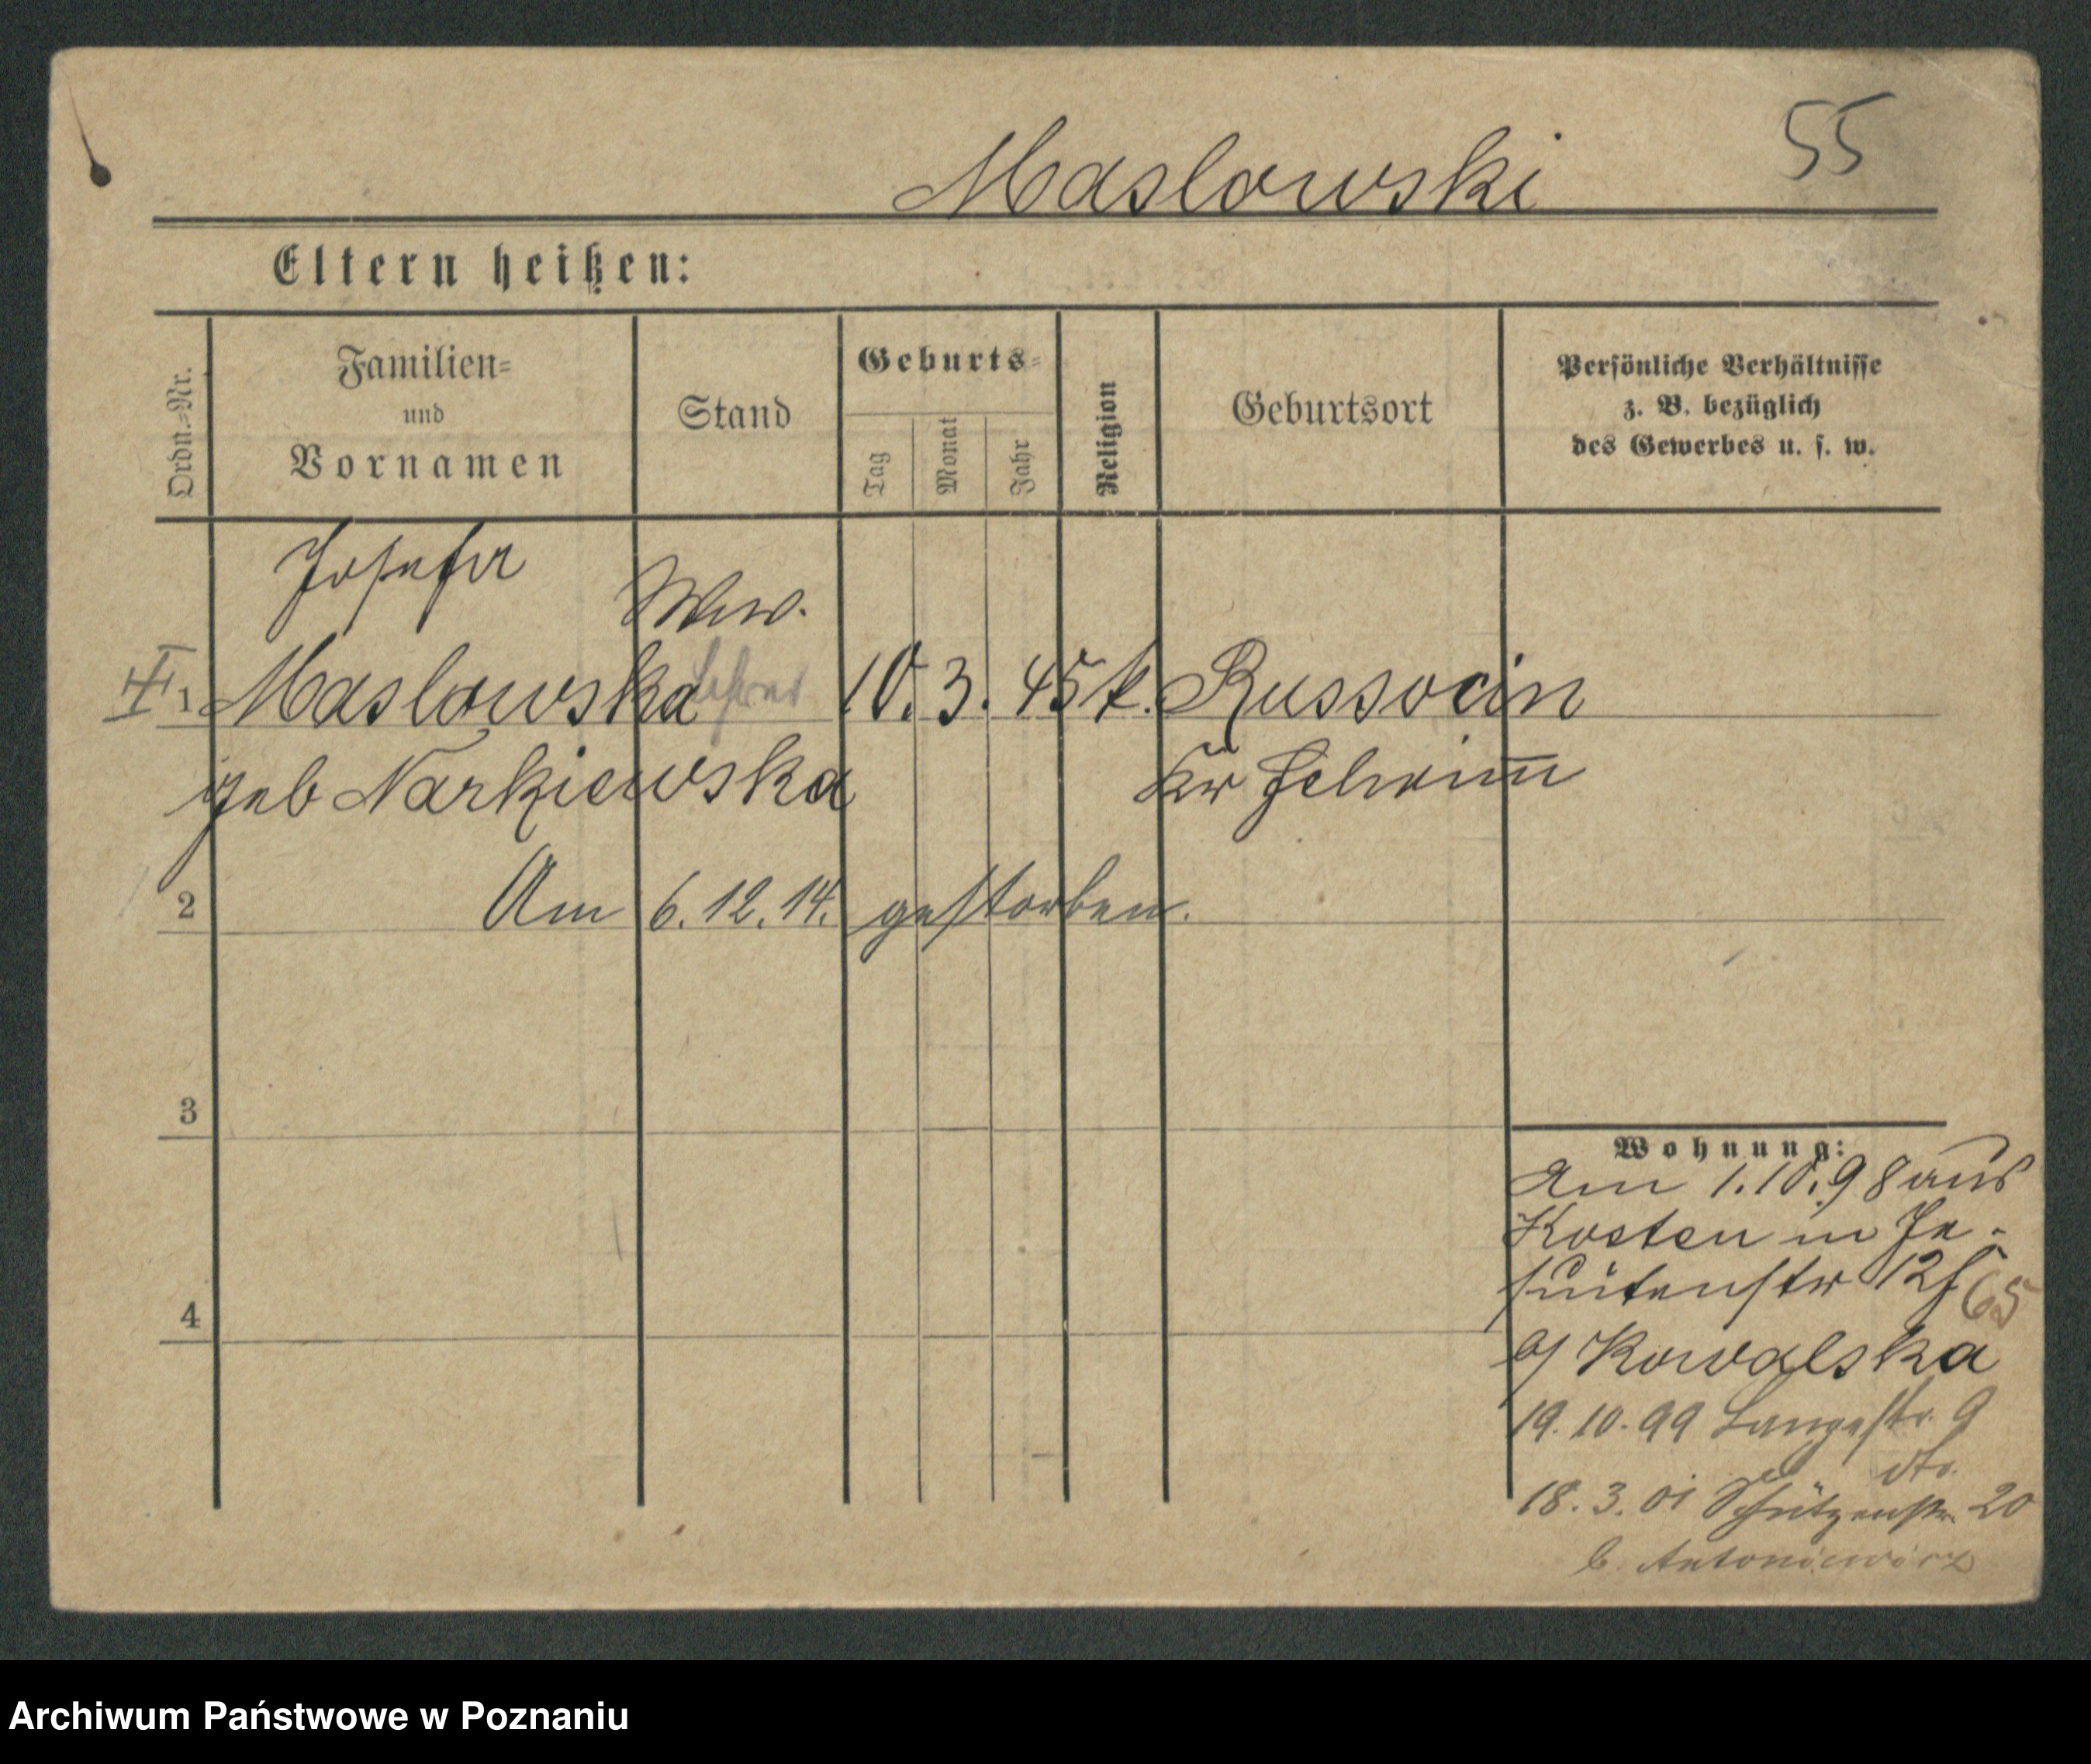 55
Maslowski
Eltern heißen:
Ordn.-Nr.
Familien-
und
Vornamen
Stand
Geburts-
Tag
Monat
Jahr
Religion
Geburtsort
Persönliche Verhältnisse
z. B. bezüglich
des Gewerbes u. s. w.
Josefa
Wwe.
1 Maslowska Lehrer 10. 3. 45 k. Russocin
geb Narkiewska Kr Schrimm
2 Am 6.12.14. gestorben.
3
4
Wohnung:
Am 1.10.98 aus
Kosten in Je-
suitenstr 12
65
b/ Kowalska
19.10.99 Langestr. 9
18.3.01 Schützenstr. 20
b. Antoniewicz
Archiwum Państwowe w Poznaniu